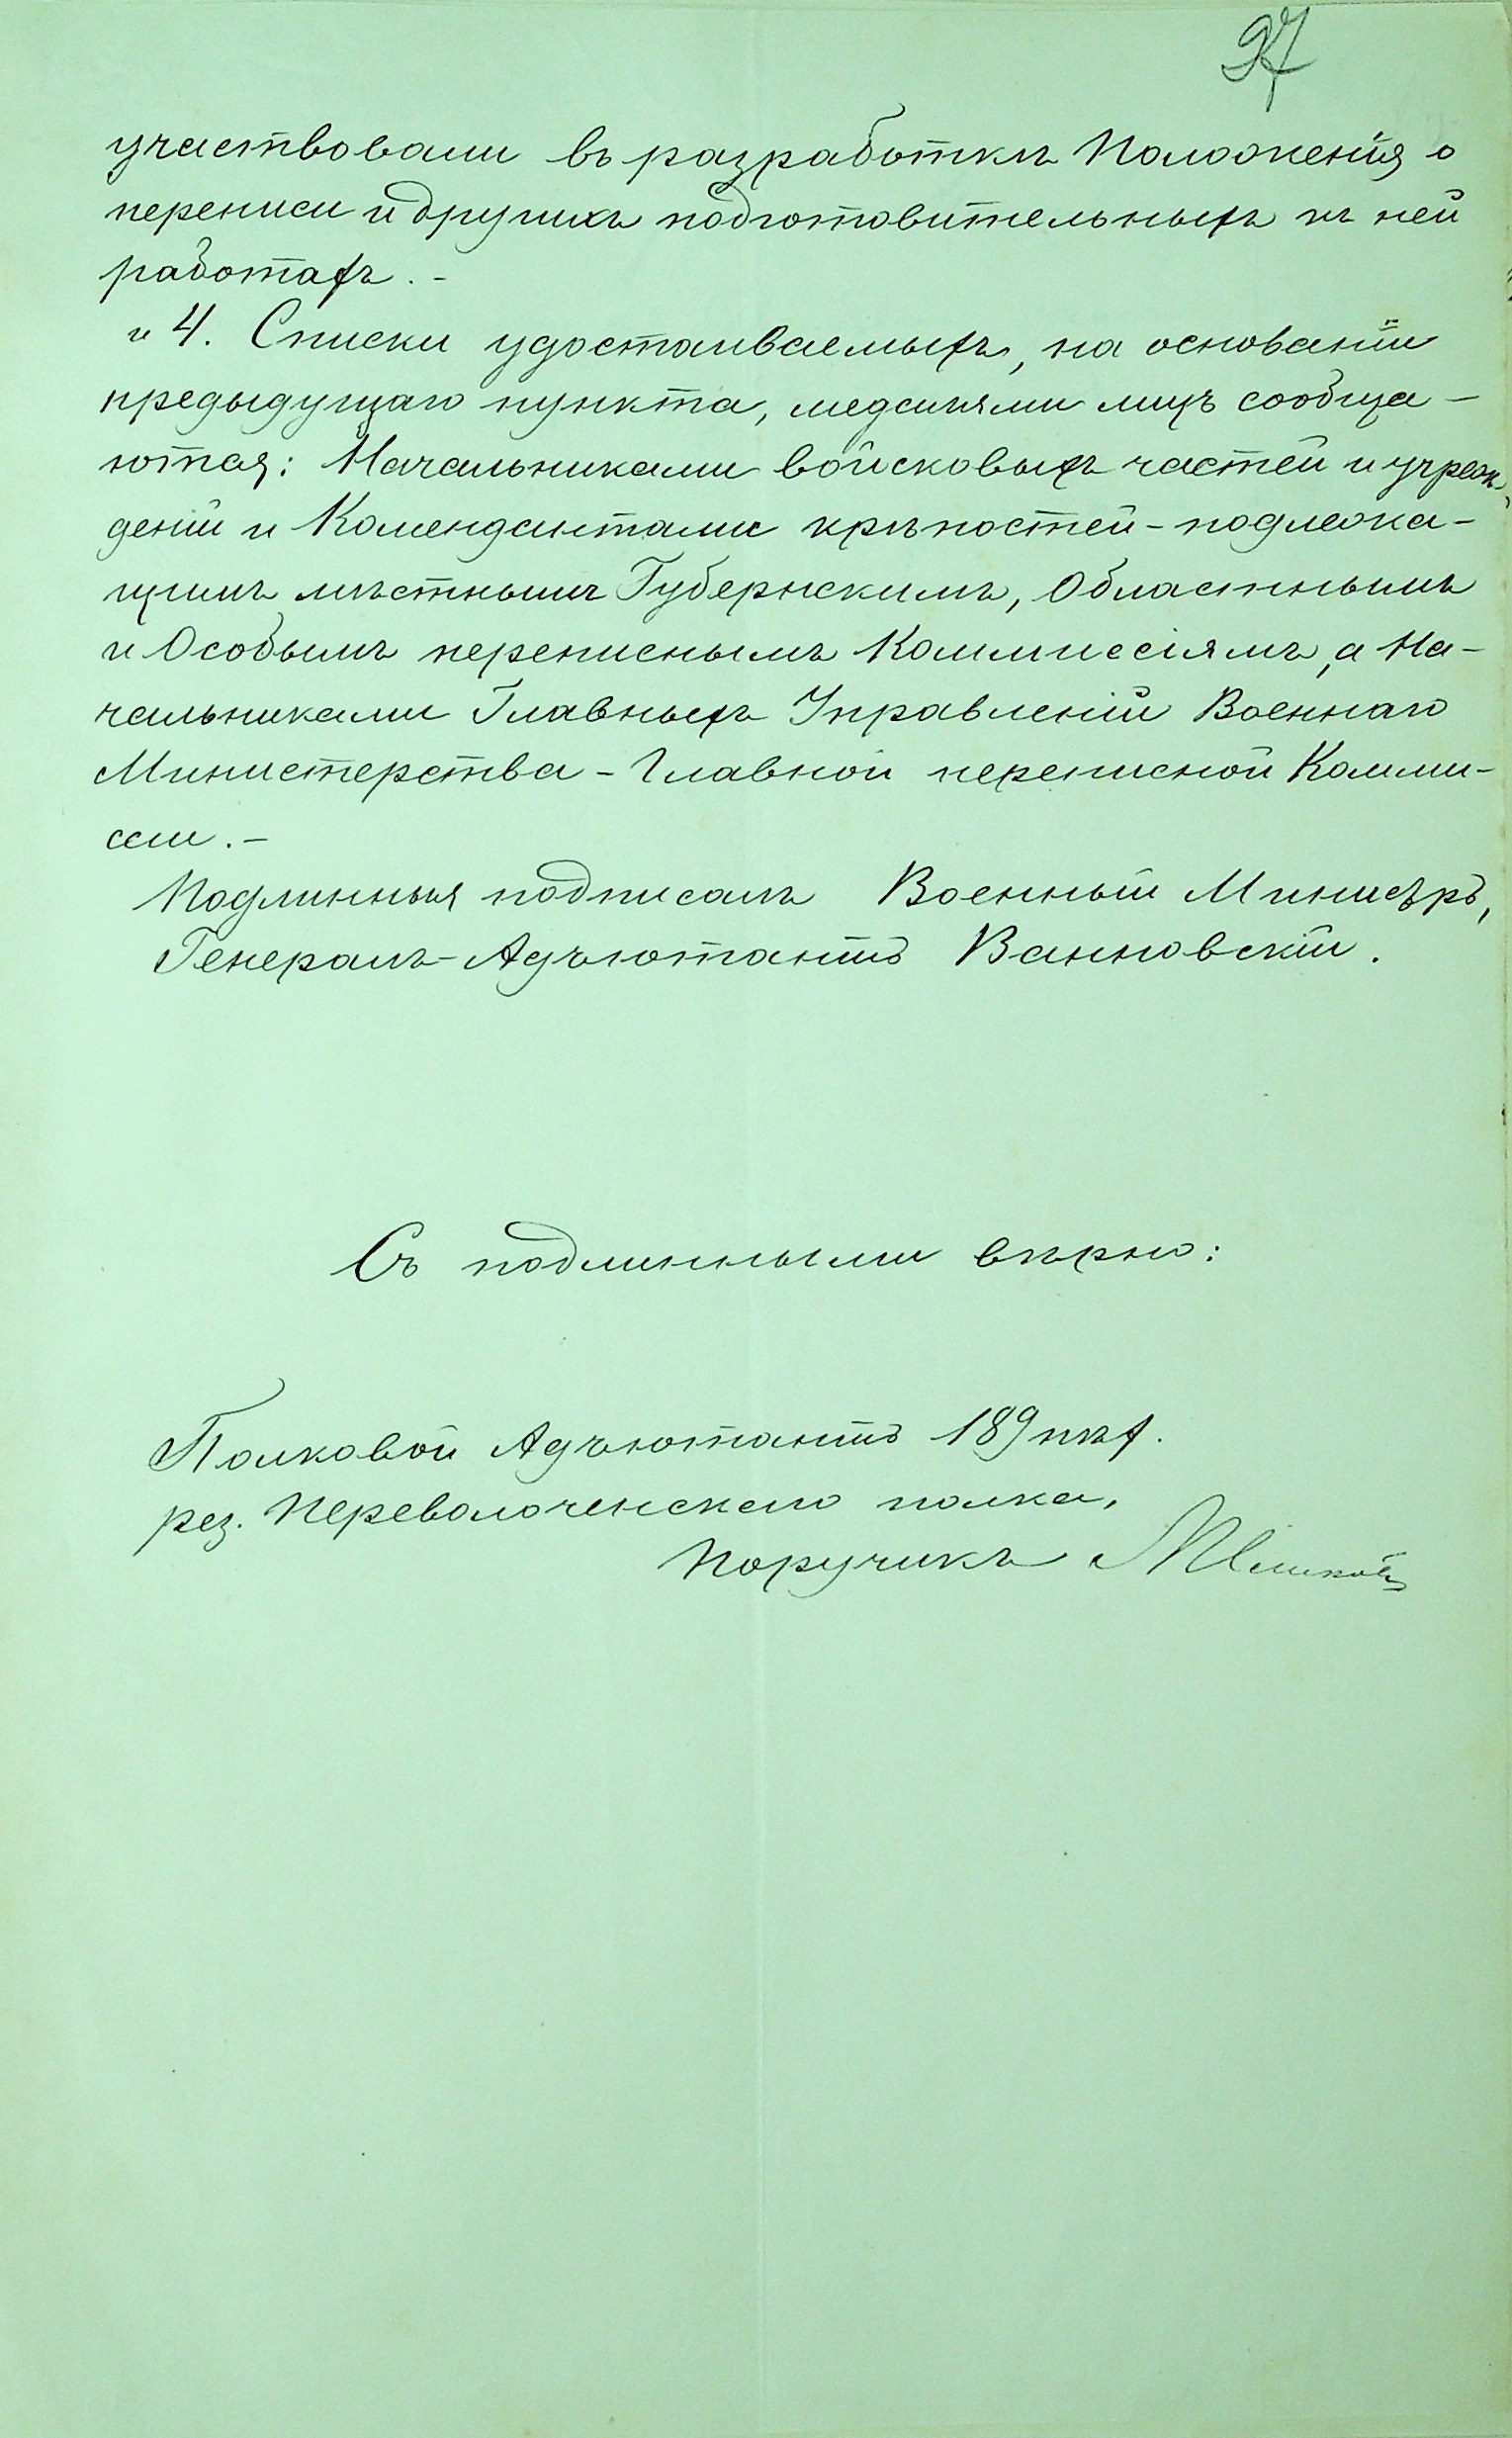 97
участвовали въ разработкѣ Положенія о
переписи и другихъ подготовительныхъ къ ней
работахъ. -
и 4. Списки удостаиваемыхъ, на основаніи
предыдущаго пункта, медалями лицъ сообща-
ются: Начальниками войсковыхъ частей и учреж-
деній и Комендантами крѣпостей - подлежа-
щимъ мѣстнымъ Губернскимъ, Областнымъ
и Особымъ переписнымъ Коммиссіямъ, а На-
чальниками Главныхъ Управленій Военнаго
Министерства - Главной переписной Комми-
сси. -
Подлинныя подписалъ Военный Министръ,
Генералъ-Адъютантъ Ванновскій.
Съ подлинными вѣрно:
Полковой Адъютантъ 189 пѣх.
рез. Переволоченскаго полка,
Поручикъ